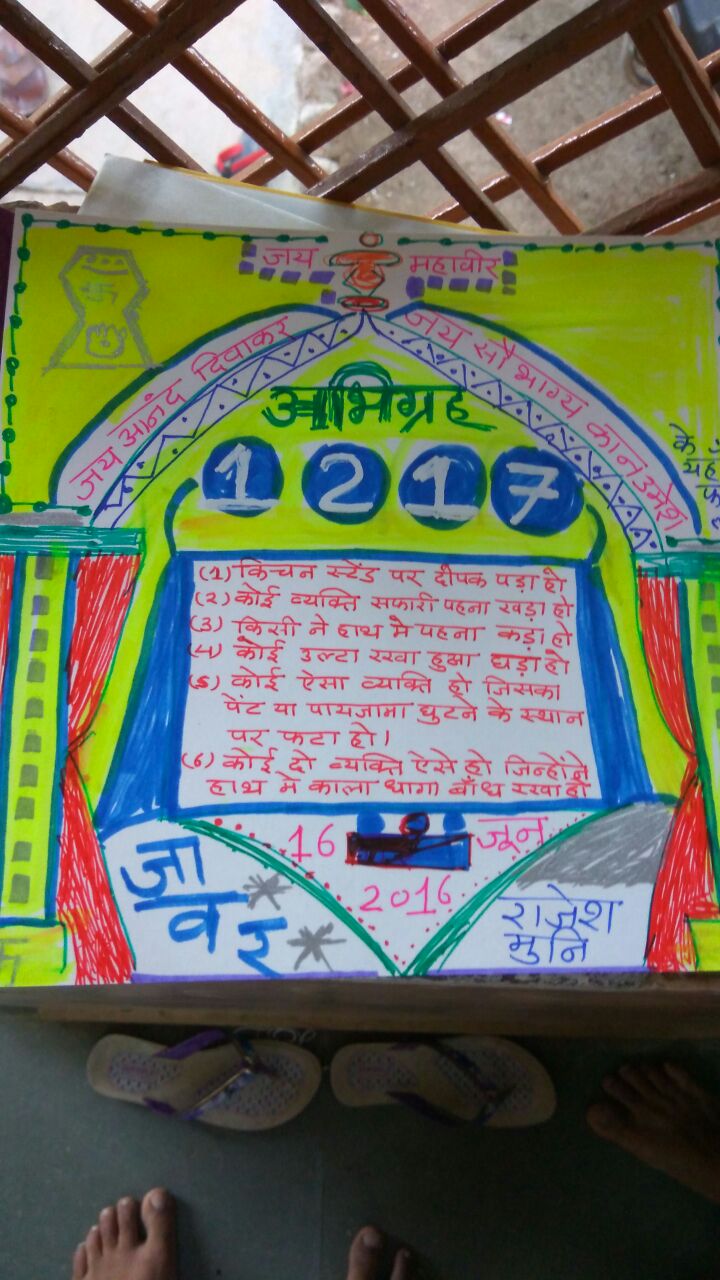 जय महावीर
जय आनंद दिवाकर
जय सौभाग्य कान उमेश
अभिग्रह
1217
(1) किचन स्टेंड पर दीपक पड़ा हो
(2) कोई व्यक्ति सफारी पहना खड़ा हो
(3) किसी ने हाथ मे पहना कड़ा हो
(4) कोई उल्टा रखा हुआ घड़ा हो
(5) कोई ऐसा व्यक्ति हो जिसका
पेंट या पायजामा घुटने के स्थान
पर फटा हो।
(6) कोई दो व्यक्ति ऐसे हो जिन्होंने
हाथ मे काला धागा बाँध रखा हो
16 जून
2016
जावर
राजेश
मुनि